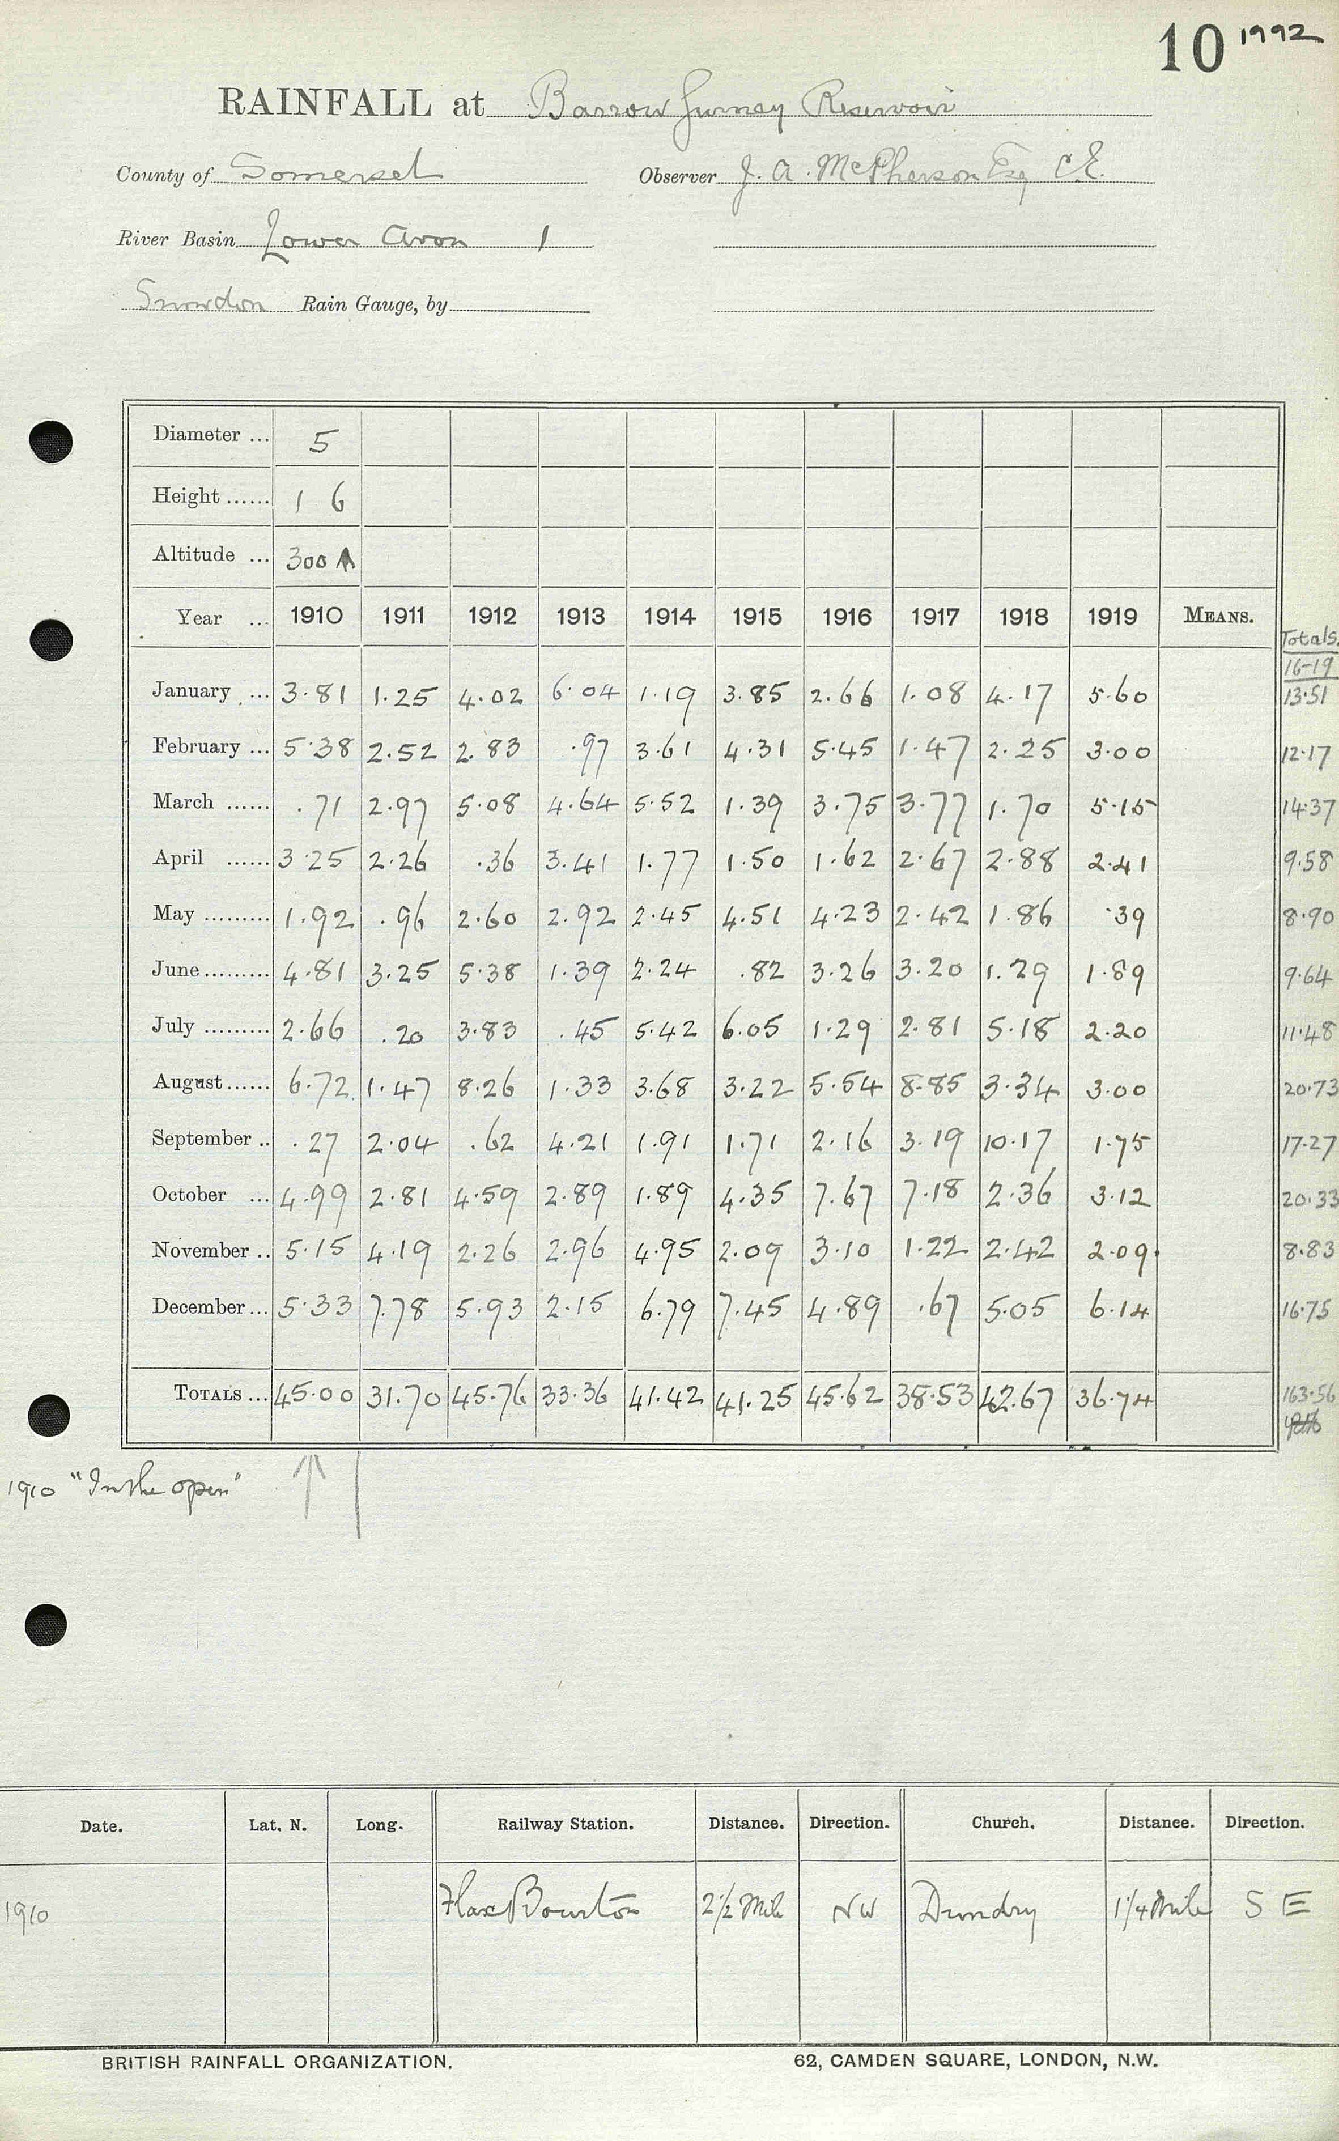 10 1992
RAINFALL at Barrow Gurney Reservoir
County of Somerset Observer J. A. McPherson Esq C.E.
River Basin Lower Avon 1
Snowdon Rain Gauge, by
Diameter ... 5
Height ...... 1 6
Altitude ... 300
Year ... 1910 1911 1912 1913 1914 1915 1916 1917 1918 1919 MEANS. Totals. 16-19
January ... 3.81 1.25 4.02 6.04 1.19 3.85 2.66 1.08 4.17 5.60 13.51
February ... 5.38 2.52 2.83 .97 3.61 4.31 5.45 1.47 2.25 3.00 12.17
March ...... .71 2.97 5.08 4.64 5.52 1.39 3.75 3.77 1.70 5.15 14.37
April ...... 3.25 2.26 .36 3.41 1.77 1.50 1.62 2.67 2.88 2.41 9.58
May ......... 1.92 .96 2.60 2.92 2.45 4.51 4.23 2.42 1.86 .39 8.90
June ......... 4.81 3.25 5.38 1.39 2.24 .82 3.26 3.20 1.29 1.89 9.64
July ......... 2.66 .20 3.83 .45 5.42 6.05 1.29 2.81 5.18 2.20 11.48
August ...... 6.72 1.47 8.26 1.33 3.68 3.22 5.54 8.85 3.34 3.00 20.73
September .. .27 2.04 .62 4.21 1.91 1.71 2.16 3.19 10.17 1.75 17.27
October ... 4.99 2.81 4.59 2.89 1.89 4.35 7.67 7.18 2.36 3.12 20.33
November .. 5.15 4.19 2.26 2.96 4.95 2.09 3.10 1.22 2.42 2.09 8.83
December ... 5.33 7.78 5.93 2.15 6.79 7.45 4.89 .67 5.05 6.14 16.75
TOTALS ... 45.00 31.70 45.76 33.36 41.42 41.25 45.62 38.53 42.67 36.74 163.56
1910 "In the open"
Date. Lat. N. Long. Railway Station. Distance. Direction. Church. Distance. Direction.
1910 Flax Bourton 2 1/2 Mile NW Dundry 1 1/4 Mile S E
BRITISH RAINFALL ORGANIZATION. 62, CAMDEN SQUARE, LONDON, N.W.